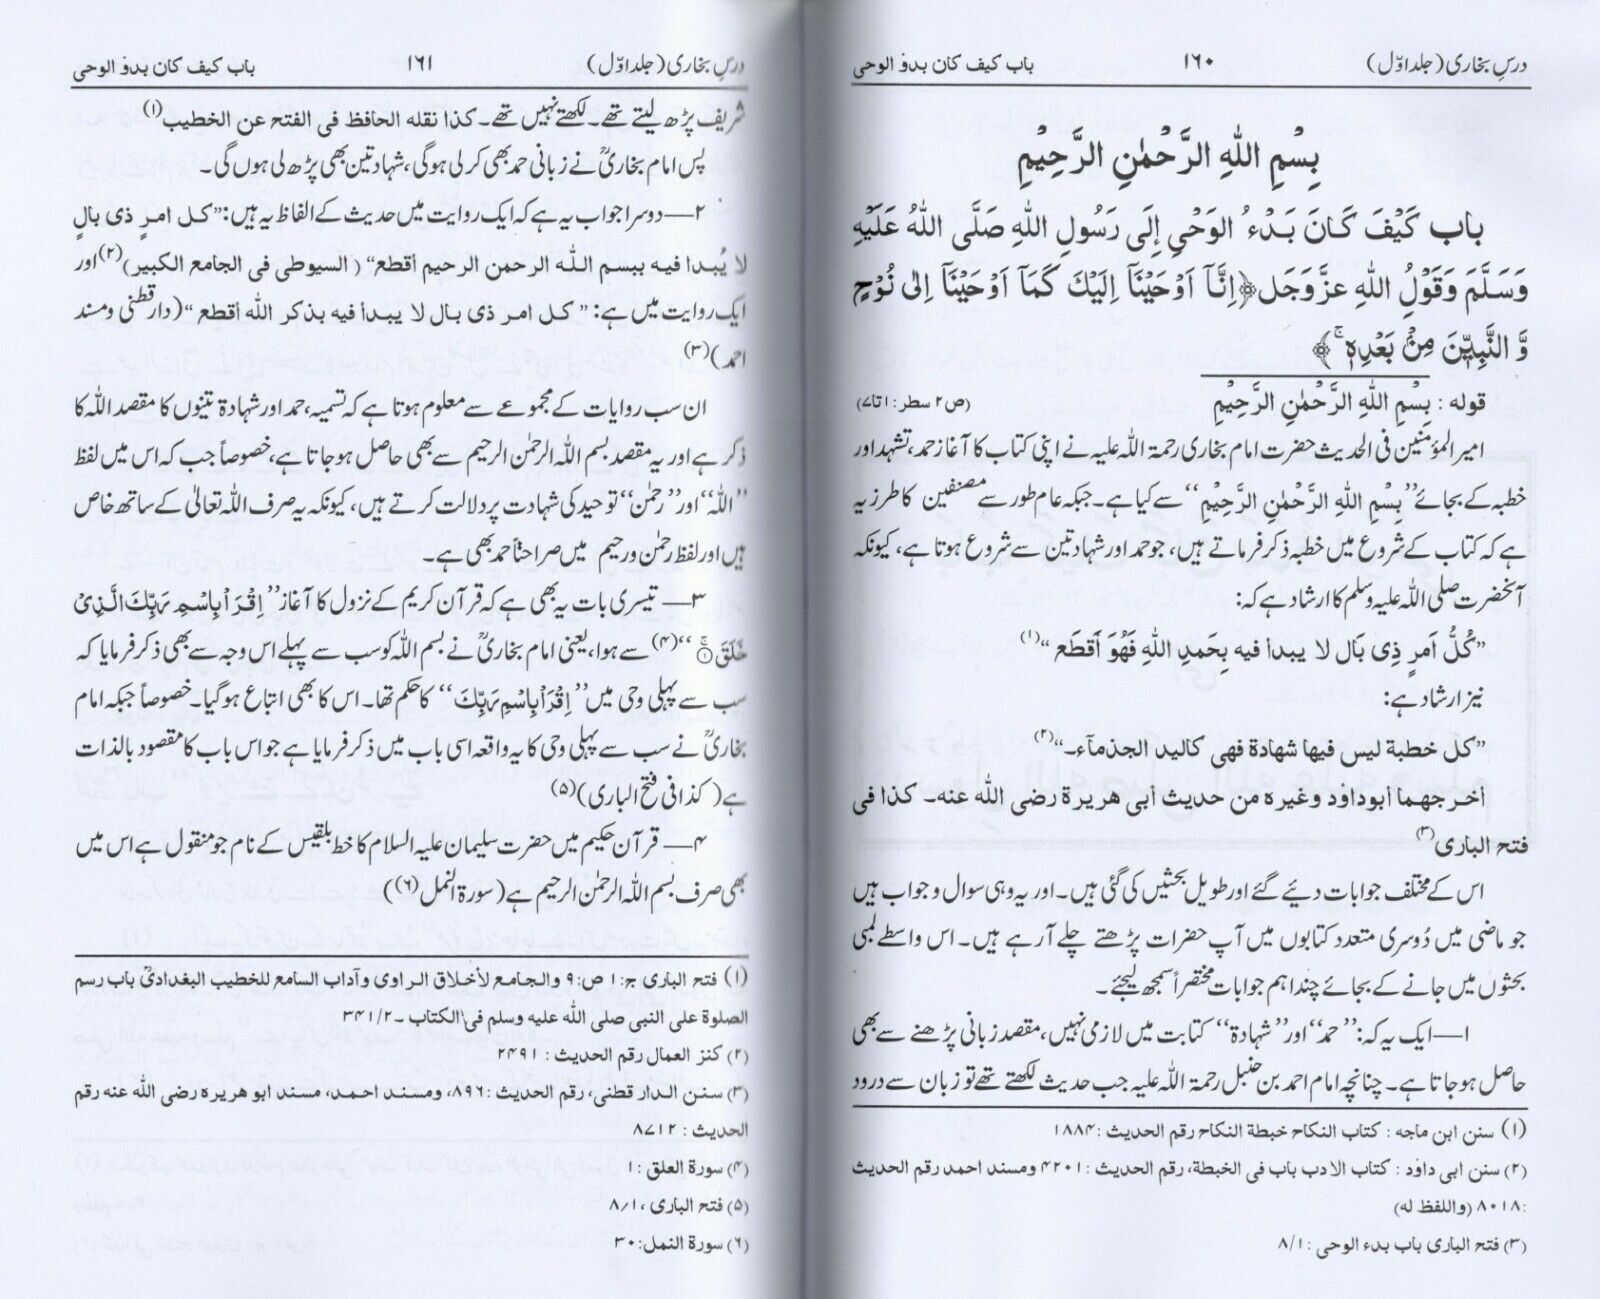 درسِ بخاری (جلد اوّل) ۱۶۰ باب کیف کان بدؤ الوحی
بِسْمِ اللّٰهِ الرَّحْمٰنِ الرَّحِيْمِ
باب كَيْفَ كَانَ بَدْءُ الوَحْيِ إِلَى رَسُولِ اللهِ صَلَّى اللهُ عَلَيْهِ
وَسَلَّمَ وَقَوْلُ اللهِ عزَّوَجَل﴿اِنَّآ اَوْحَيْنَآ اِلَيْكَ كَمَآ اَوْحَيْنَآ اِلٰى نُوْحٍ
وَّ النَّبِيّٖنَ مِنْۢ بَعْدِهٖ ۚ﴾
قوله : بِسْمِ اللّٰهِ الرَّحْمٰنِ الرَّحِيْمِ (ص۲ سطر: ۱ تا ۷)
امیر المؤمنین فی الحدیث حضرت امام بخاری رحمۃ اللہ علیہ نے اپنی کتاب کا آغاز حمد، تشہد اور
خطبہ کے بجائے ”بِسْمِ اللّٰهِ الرَّحْمٰنِ الرَّحِيْمِ“ سے کیا ہے۔ جبکہ عام طور سے مصنفین کا طرز یہ
ہے کہ کتاب کے شروع میں خطبہ ذکر فرماتے ہیں، جو حمد اور شہادتین سے شروع ہوتا ہے، کیونکہ
آنحضرت صلی اللہ علیہ وسلم کا ارشاد ہے کہ:
”كُلُّ اَمرٍ ذِی بَال لا یبدأ فیه بِحَمدِ اللهِ فَهُوَ اَقطَع“(۱)
نیز ارشاد ہے:
”کل خطبة لیس فیها شهادة فهی کالید الجذمآء۔“(۲)
أخرجهما أبوداؤد وغیره من حدیث أبی هریرة رضی الله عنه۔ کذا فی
فتح الباری(۳)
اس کے مختلف جوابات دیئے گئے اور طویل بحثیں کی گئی ہیں۔ اور یہ وہی سوال و جواب ہیں
جو ماضی میں دُوسری متعدد کتابوں میں آپ حضرات پڑھتے چلے آ رہے ہیں۔ اس واسطے لمبی
بحثوں میں جانے کے بجائے چند اہم جوابات مختصراً سمجھ لیجئے۔
۱—ایک یہ کہ: ”حمد“ اور ”شهادة“ کتابت میں لازمی نہیں، مقصد زبانی پڑھنے سے بھی
حاصل ہوجاتا ہے۔ چنانچہ امام احمد بن حنبل رحمۃ اللہ علیہ جب حدیث لکھتے تھے تو زبان سے درود
(۱) سنن ابن ماجه : کتاب النکاح خبطة النکاح رقم الحدیث :۱۸۸۴
(۲) سنن ابی داؤد : کتاب الادب باب فی الخبطة، رقم الحدیث :۴۲۰۱ ومسند احمد رقم الحدیث
:۸۰۱۸ (واللفظ له)
(۳) فتح الباری باب بدء الوحی :۸/۱
درسِ بخاری (جلد اوّل) ۱۶۱ باب کیف کان بدؤ الوحی
شریف پڑھ لیتے تھے۔ لکھتے نہیں تھے۔ کذا نقله الحافظ فی الفتح عن الخطیب(۱)
پس امام بخاریؒ نے زبانی حمد بھی کرلی ہوگی، شہادتین بھی پڑھ لی ہوں گی۔
۲—دوسرا جواب یہ ہے کہ ایک روایت میں حدیث کے الفاظ یہ ہیں: ”کل امرٍ ذی بالٍ
لا یُبدا فیه ببسم الله الرحمن الرحیم أقطع“ (السیوطی فی الجامع الکبیر)(۲) اور
ایک روایت میں ہے: ”کل امر ذی بال لا یبدأ فیه بذکر الله أقطع“ (دارقطنی ومسند
احمد)(۳)
ان سب روایات کے مجموعے سے معلوم ہوتا ہے کہ تسمیہ، حمد اور شہادۃ تینوں کا مقصد اللہ کا
ذکر ہے اور یہ مقصد بسم اللہ الرحمٰن الرحیم سے بھی حاصل ہوجاتا ہے، خصوصاً جب کہ اس میں لفظ
”اللہ“ اور ”رحمٰن“ توحید کی شہادت پر دلالت کرتے ہیں، کیونکہ یہ صرف اللہ تعالیٰ کے ساتھ خاص
ہیں اور لفظ رحمٰن ورحیم میں صراحتاً حمد بھی ہے۔
۳— تیسری بات یہ بھی ہے کہ قرآن کریم کے نزول کا آغاز ”اِقْرَاْ بِاسْمِ رَبِّكَ الَّذِیْ
خَلَقَ ۚ۝۱“(۴) سے ہوا، یعنی امام بخاریؒ نے بسم اللہ کو سب سے پہلے اس وجہ سے بھی ذکر فرمایا کہ
سب سے پہلی وحی میں ”اِقْرَاْ بِاسْمِ رَبِّكَ“ کا حکم تھا۔ اس کا بھی اتباع ہوگیا۔ خصوصاً جبکہ امام
بخاریؒ نے سب سے پہلی وحی کا یہ واقعہ اسی باب میں ذکر فرمایا ہے جو اس باب کا مقصود بالذات
ہے (کذا فی فتح الباری)(۵)
۴— قرآن حکیم میں حضرت سلیمان علیہ السلام کا خط بلقیس کے نام جو منقول ہے اس میں
بھی صرف بسم اللہ الرحمٰن الرحیم ہے (سورۃ النمل(۶))
(۱) فتح الباری ج:۱ ص:۹ والجامع لأخلاق الراوی وآداب السامع للخطیب البغدادیؒ باب رسم
الصلوة علی النبی صلی الله علیه وسلم فی الکتاب ۔۳۴۱/۲
(۲) کنز العمال رقم الحدیث : ۲۴۹۱
(۳) سنن الدار قطنی، رقم الحدیث :۸۹۶، ومسند احمد، مسند ابو هریره رضی الله عنه رقم
الحدیث : ۸۷۱۲
(۴) سورة العلق : ۱
(۵) فتح الباری ،۸/۱
(۶) سورة النمل: ۳۰